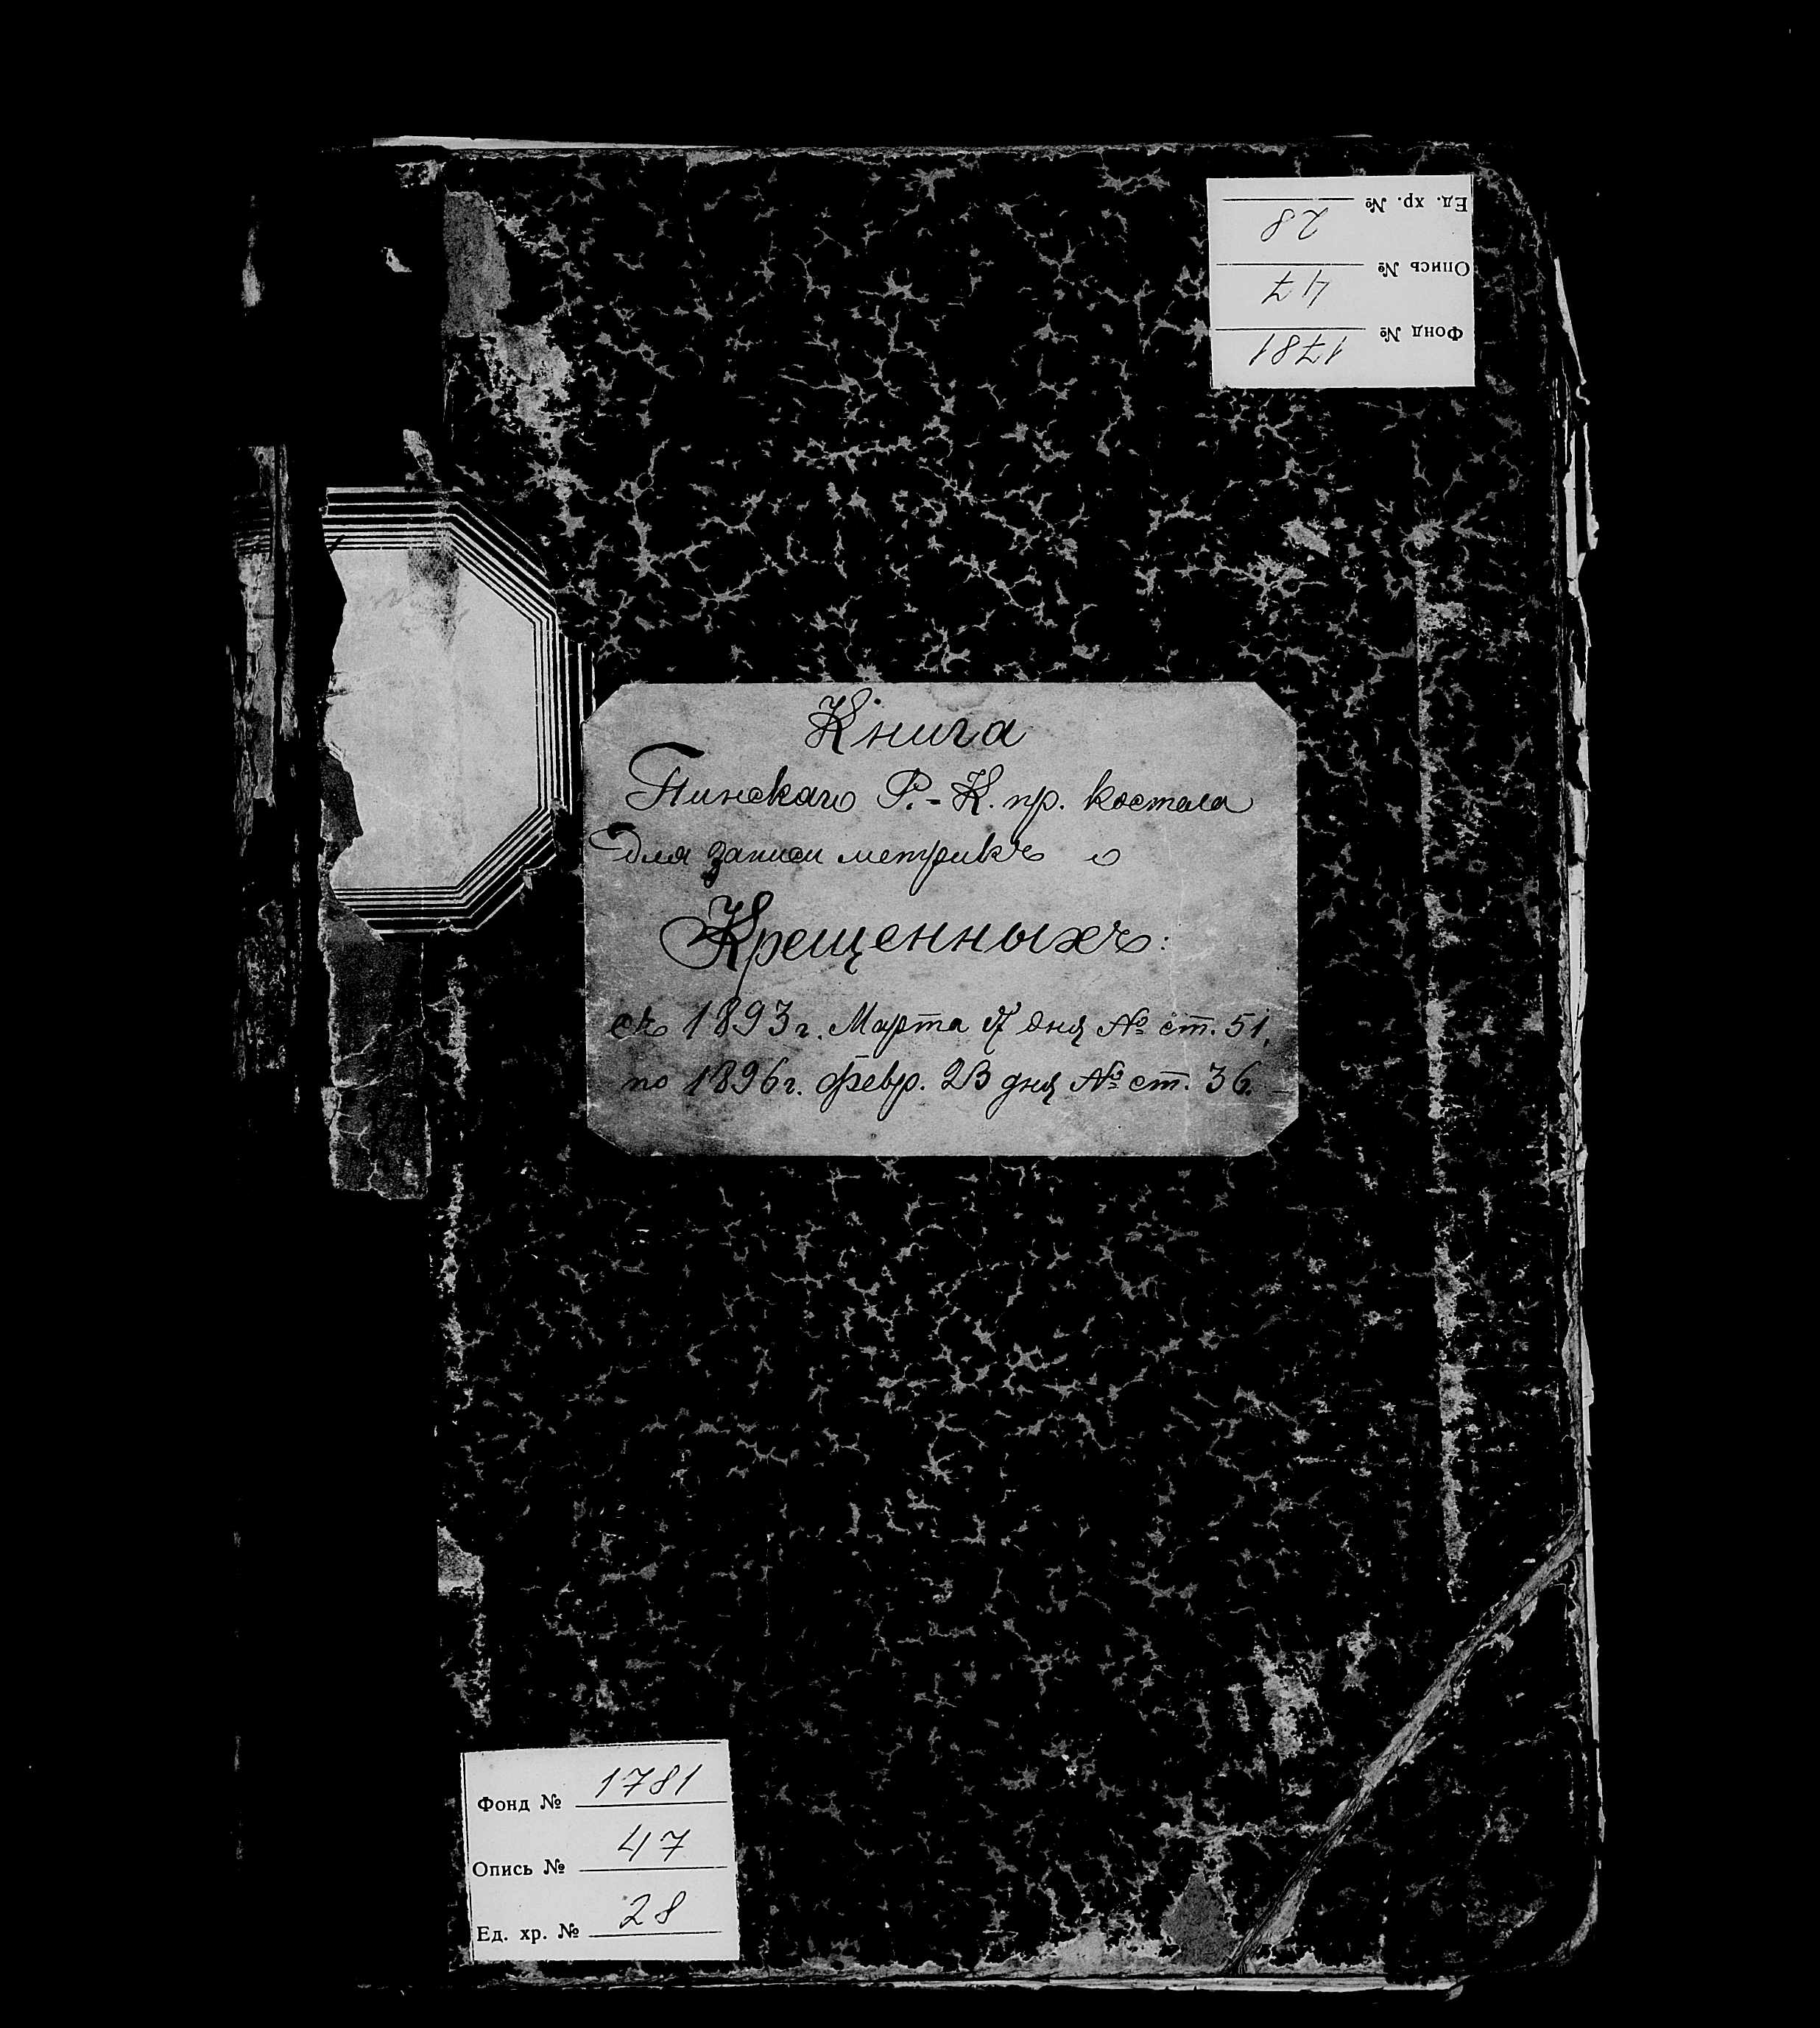 Ед. хр. № 28
Опись № 47
Фонд № 1781
Книга
Пинскаго Р.-К. пр. костела
для записи метрикъ о
Крещенныхъ:
съ 1893 г. Марта дня № ст. 51.
по 1896 г. Февр. 23 дня № ст. 36.
Фонд № 1781
Опись № 47
Ед. хр. № 28